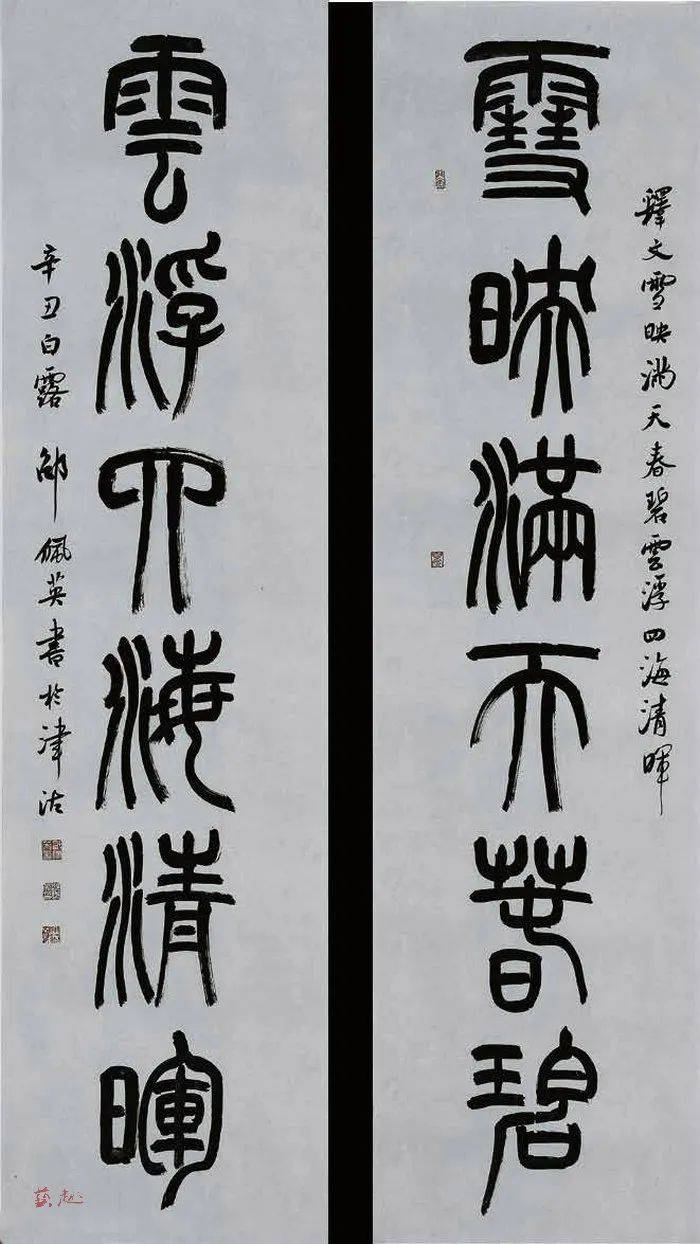 釋文雪映滿天春碧雲浮四海清暉
雪映滿天春碧
雲浮四海清暉
辛丑白露 邵佩英書於津沽